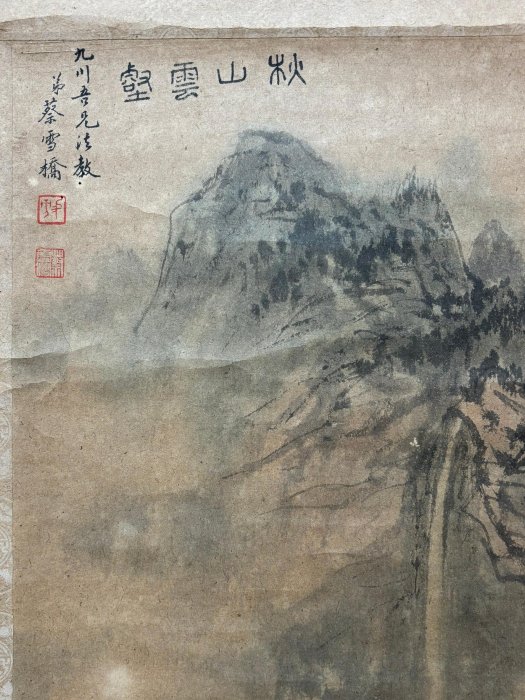 秋山雲壑
九川吾兄法教
弟蔡雪橋